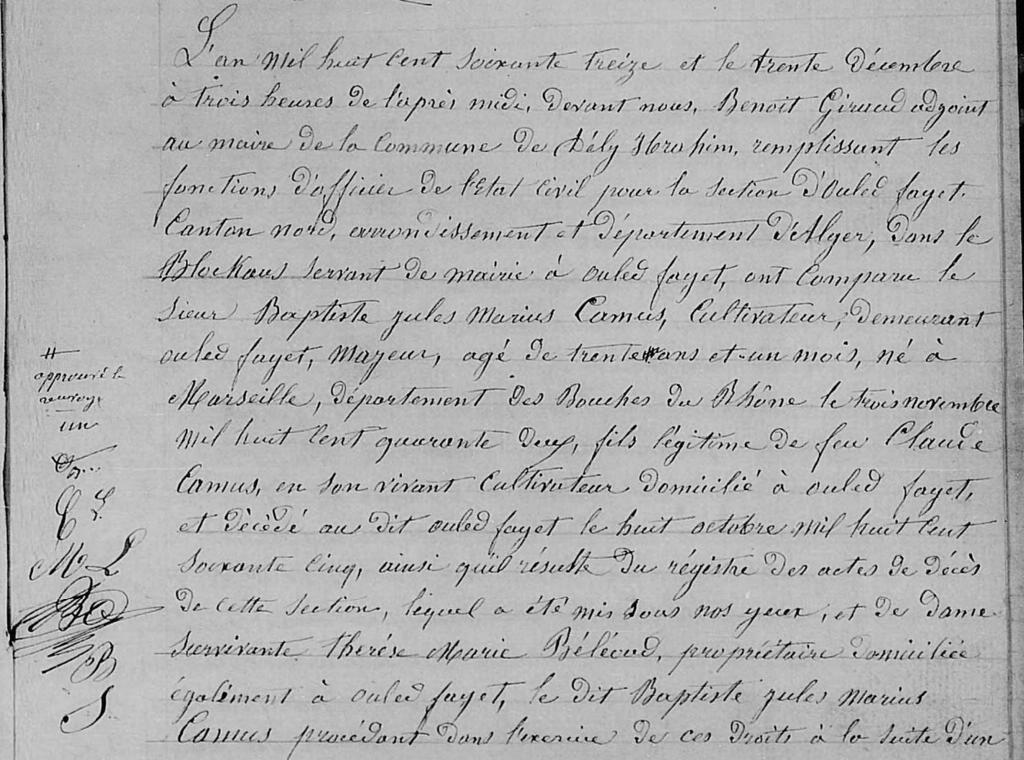 L'an mil huit cent soixante treize et le trente Décembre
à trois heures de l'après midi, devant nous, Benoit Giraud adjoint
au maire de la Commune de Dély Ibrahim, remplissant les
fonctions d'officier de l'Etat Civil pour la section d'Ouled fayet.
Canton nord, arrondissement et département d'Alger, dans le
Blockaus servant de mairie à ouled fayet, ont Comparu le
sieur Baptiste jules Marius Camus, Cultivateur, demeurant
ouled fayet, majeur, agé de trente # ans et un mois, né à
#
approuvé le
renvoi
un
Marseille, département des Bouches du Rhône le trois novembre
mil huit cent quarante deux, fils légitime de feu Claude
Camus, en son vivant Cultivateur domicilié à ouled fayet,
et décédé au dit ouled fayet le huit octobre mil huit cent
soixante cinq, ainsi qu'il résulte du régistre des actes de décès
M. L
de cette section, lequel a été mis sous nos yeux, et de dame
survivante thérèse Marie Béléoud, propriétaire domiciliée
B
S
également à ouled fayet, le dit Baptiste jules Marius
Camus procédant dans l'exercice de ces droits à la suite d'un